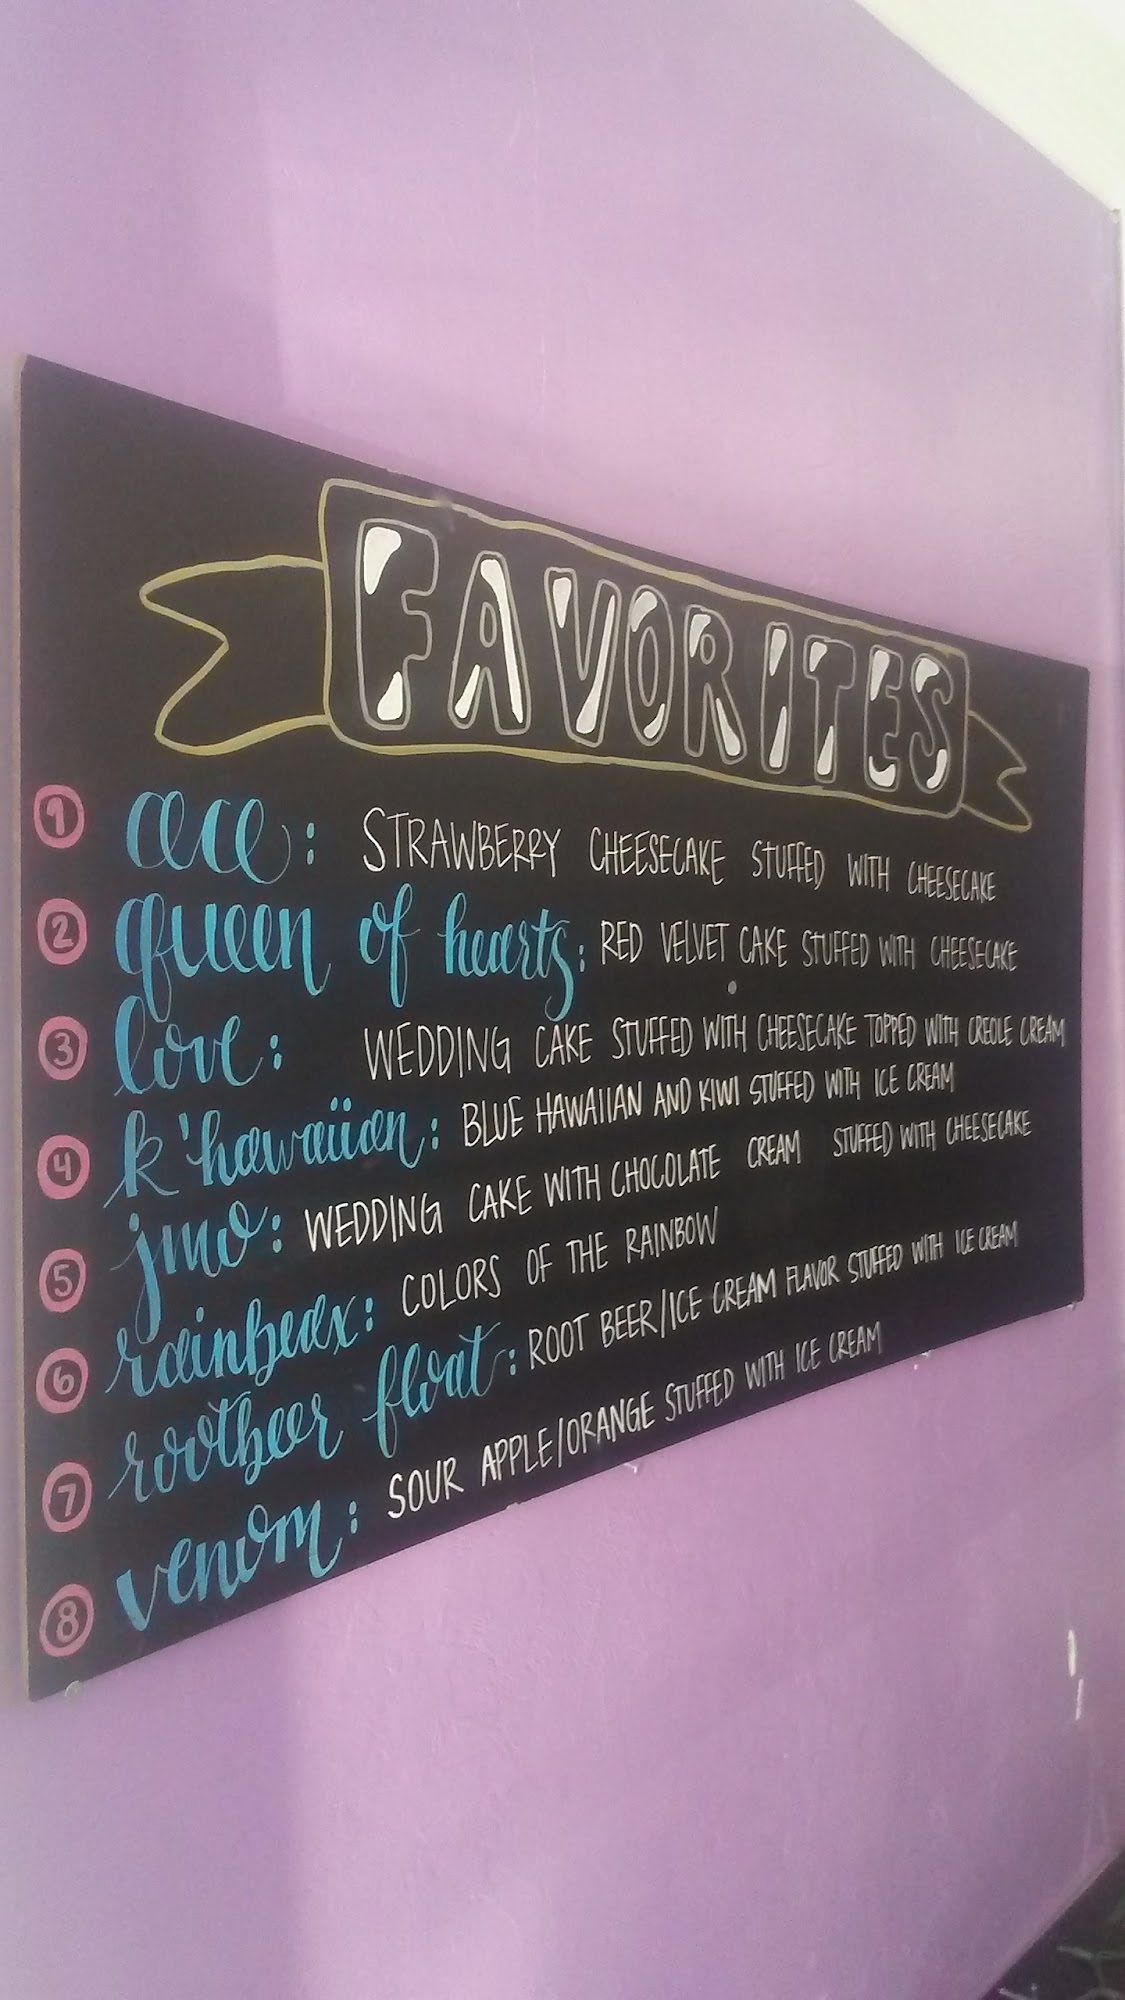 FAVORITES
1 cece: STRAWBERRY CHEESECAKE STUFFED WITH CHEESECAKE
2 queen of hearts: RED VELVET CAKE STUFFED WITH CHEESECAKE
3 love: WEDDING CAKE STUFFED WITH CHEESECAKE TOPPED WITH CREOLE CREAM
4 k'hawaiian: BLUE HAWAIIAN AND KIWI STUFFED WITH ICE CREAM
5 jmo: WEDDING CAKE WITH CHOCOLATE CREAM STUFFED WITH CHEESECAKE
6 rainbeaux: COLORS OF THE RAINBOW
7 rootbeer float: ROOT BEER/ICE CREAM FLAVOR STUFFED WITH ICE CREAM
8 venom: SOUR APPLE/ORANGE STUFFED WITH ICE CREAM